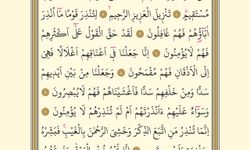 مُسْتَقِيمٍ ۞ تَنْزِيلَ الْعَزِيزِ الرَّحِيمِ ۞ لِتُنْذِرَ قَوْمًا مَٓا اُنْذِرَ
اٰبَٓاؤُهُمْ فَهُمْ غَافِلُونَ ۞ لَقَدْ حَقَّ الْقَوْلُ عَلٰٓى اَكْثَرِهِمْ
فَهُمْ لَا يُؤْمِنُونَ ۞ اِنَّا جَعَلْنَا فِٓى اَعْنَاقِهِمْ اَغْلَالًا فَهِىَ
اِلَى الْاَذْقَانِ فَهُمْ مُقْمَحُونَ ۞ وَجَعَلْنَا مِنْ بَيْنِ اَيْدِيهِمْ
سَدًّا وَمِنْ خَلْفِهِمْ سَدًّا فَاَغْشَيْنَاهُمْ فَهُمْ لَا يُبْصِرُونَ ۞
وَسَوَٓاءٌ عَلَيْهِمْ ءَاَنْذَرْتَهُمْ اَمْ لَمْ تُنْذِرْهُمْ لَا يُؤْمِنُونَ ۞
اِنَّمَا تُنْذِرُ مَنِ اتَّبَعَ الذِّكْرَ وَخَشِىَ الرَّحْمٰنَ بِالْغَيْبِ فَبَشِّرْهُ